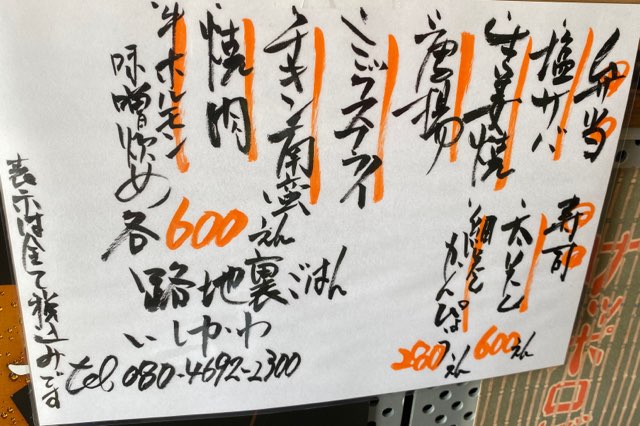 弁当
塩サバ
生姜焼
唐揚
ミックスフライ
チキン南蛮
焼肉
牛ホルモン
味噌炒め
各600えん
寿司
太巻
かんぴょ
600えん
280えん
路地裏ごはん
いしかわ
tel 080-4692-2300
表示は全て税込みです
サッポロ